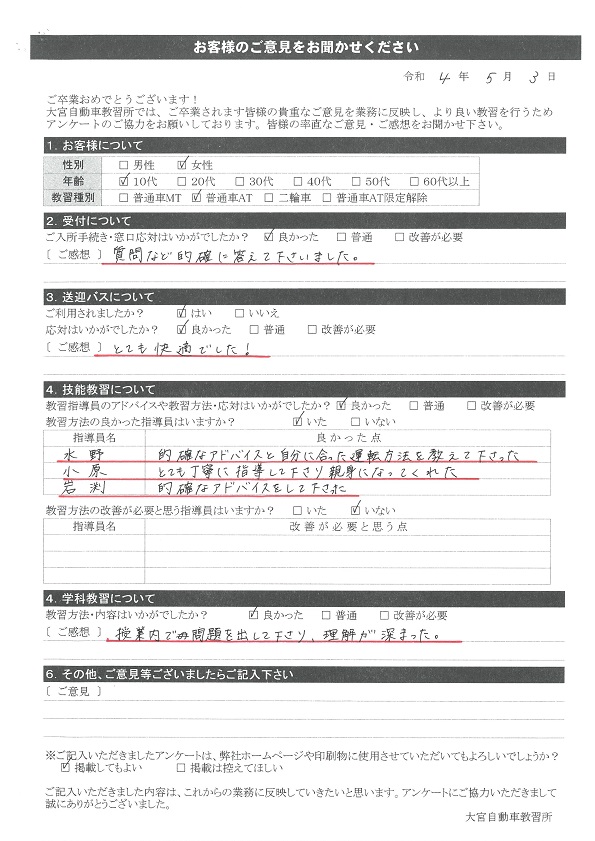 お客様のご意見をお聞かせください
令和 4 年 5 月 3 日
ご卒業おめでとうございます！
大宮自動車教習所では、ご卒業されます皆様の貴重なご意見を業務に反映し、より良い教習を行うため
アンケートのご協力をお願いしております。皆様の率直なご意見・ご感想をお聞かせ下さい。
1. お客様について
性別 □ 男性 ☑ 女性
年齢 ☑ 10代 □ 20代 □ 30代 □ 40代 □ 50代 □ 60代以上
教習種別 □ 普通車MT ☑ 普通車AT □ 二輪車 □ 普通車AT限定解除
2. 受付について
ご入所手続き・窓口応対はいかがでしたか？ ☑ 良かった □ 普通 □ 改善が必要
〔 ご感想 〕 質問など的確に答えて下さいました。
3. 送迎バスについて
ご利用されましたか？ ☑ はい □ いいえ
応対はいかがでしたか？ ☑ 良かった □ 普通 □ 改善が必要
〔 ご感想 〕 とても快適でした！
4. 技能教習について
教習指導員のアドバイスや教習方法・応対はいかがでしたか？ ☑ 良かった □ 普通 □ 改善が必要
教習方法の良かった指導員はいますか？ ☑ いた □ いない
指導員名 良かった点
水野 的確なアドバイスと自分に合った運転方法を教えて下さった
小原 とても丁寧に指導して下さり親身になってくれた
岩渕 的確なアドバイスをして下さった
教習方法の改善が必要と思う指導員はいますか？ □ いた ☑ いない
指導員名 改善が必要と思う点
4. 学科教習について
教習方法・内容はいかがでしたか？ ☑ 良かった □ 普通 □ 改善が必要
〔 ご感想 〕 授業内でも問題を出して下さり、理解が深まった。
6. その他、ご意見等ございましたらご記入下さい
〔 ご意見 〕
※ご記入いただきましたアンケートは、弊社ホームページや印刷物に使用させていただいてもよろしいでしょうか？
☑ 掲載してもよい □ 掲載は控えてほしい
ご記入いただきました内容は、これからの業務に反映していきたいと思います。アンケートにご協力いただきまして
誠にありがとうございました。
大宮自動車教習所